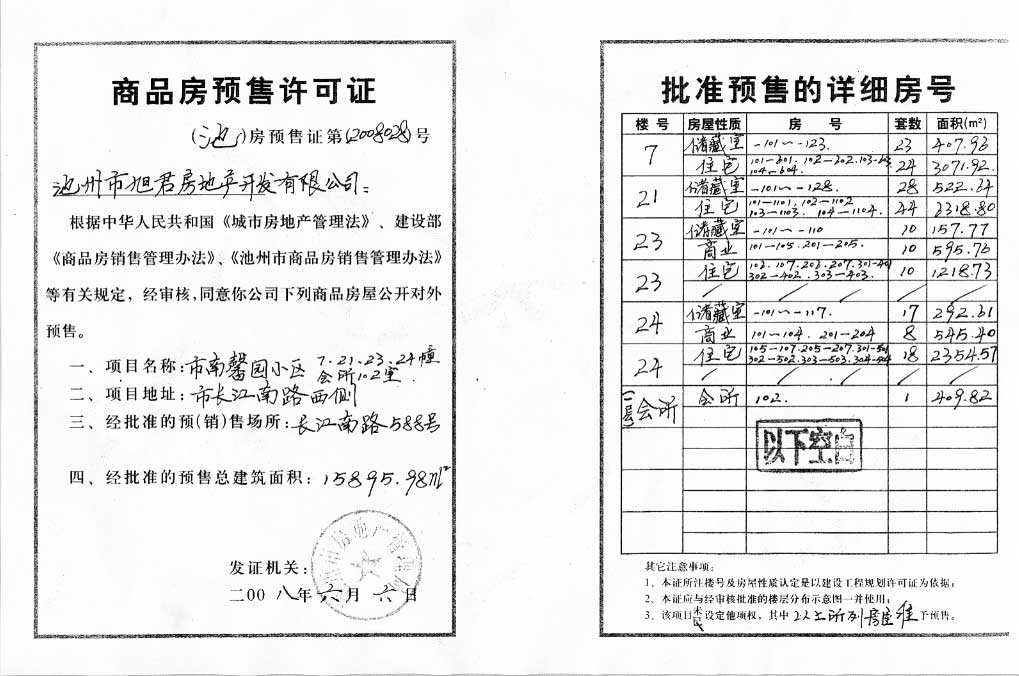 商品房预售许可证
(池)房预售证第(2008028)号
池州市旭君房地产开发有限公司:
根据中华人民共和国《城市房地产管理法》、建设部
《商品房销售管理办法》、《池州市商品房销售管理办法》
等有关规定，经审核，同意你公司下列商品房屋公开对外
预售。
一、项目名称:市南馨园小区 7.21.23.24幢
会所102室
二、项目地址:市长江南路西侧
三、经批准的预(销)售场所:长江南路588号
四、经批准的预售总建筑面积:15895.98m²
发证机关:
二00八年六月六日
批准预售的详细房号
楼号 房屋性质 房号 套数 面积(m²)
7 储藏室 -101~-123. 23 407.93
住宅 101-601. 102-602. 103-603 104-604. 24 3071.92.
21 储藏室 -101~-128. 28 522.34
住宅 101-1101. 102-1102 103-1103. 104-1104. 44 3318.80
23 储藏室 -101~-110 10 157.77
商业 101-105. 201-205. 10 595.76
23 住宅 302-402. 303-403. 10 1218.73
24 储藏室 -101~-117. 17 292.31
商业 101-104. 201-204 8 545.40
24 住宅 105-107. 205-207. 301-501 302-502. 303-503. 304-504 18 2354.57
会所 会所 102. 1 409.82
以下空白
其它注意事项:
1、本证所注楼号及房屋性质认定是以建设工程规划许可证为依据;
2、本证应与经审核批准的楼层分布示意图一并使用;
3、该项目未设定他项权，其中以上所列房屋准予预售。